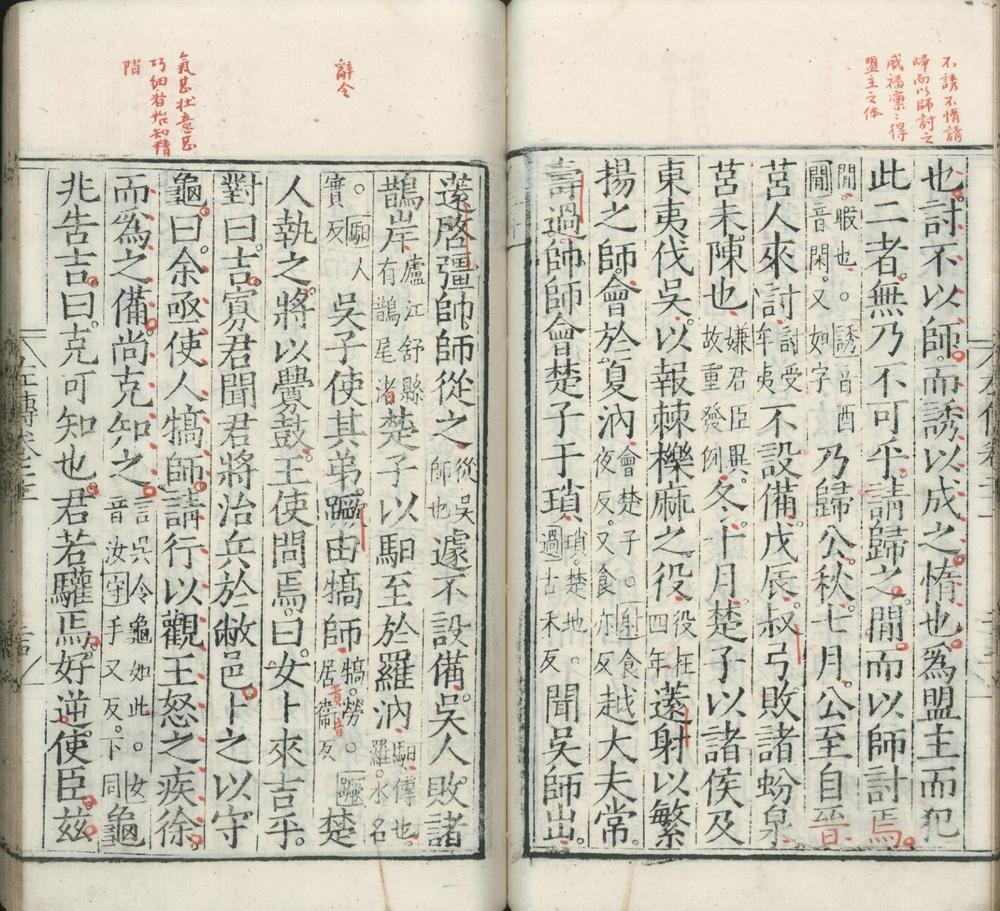 不誘不惰請
歸而以師討之
威福凜凜得
盟主之体
也討不以師而誘以成之惰也為盟主而犯
此二者無乃不可乎請歸之間而以師討焉
間暇也○誘音酉
間音閑又如字
乃歸公秋七月公至自晉
莒人來討
討受
牟夷
不設備戊辰叔弓敗諸蚡泉
莒未陳也
嫌君臣異
故重發例
冬十月楚子以諸侯及
東夷伐吳以報棘櫟麻之役
役在
四年
薳射以繁
揚之師會於夏汭
會楚子○射食
夜反又食亦反
越大夫常
壽過帥師會楚子于瑣
瑣楚地○
過古禾反
聞吳師出
薳啓彊帥師從之
從吳
師也
遽不設備吳人敗諸
鵲岸
廬江舒縣
有鵲尾渚
楚子以馹至於羅汭
馹傳也
羅水名
○馹人
實反
吳子使其弟蹶由犒師
犒勞○蹶
居衞反
貴音
楚
人執之將以釁鼓王使問焉曰女卜來吉乎
對曰吉寡君聞君將治兵於敝邑卜之以守
龜曰余亟使人犒師請行以觀王怒之疾徐
而為之備尚克知之
言吳令龜如此○女
音汝守手又反下同
龜
兆告吉曰克可知也君若驩焉好逆使臣茲
辭令
氣甚壮意甚
巧細看始知精